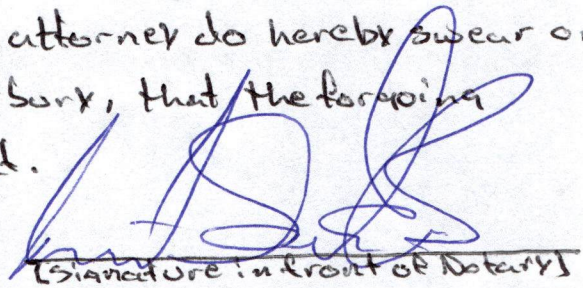 attorney do hereby swear or
bury, that the forgoing
d.
[signature in front of Notary]